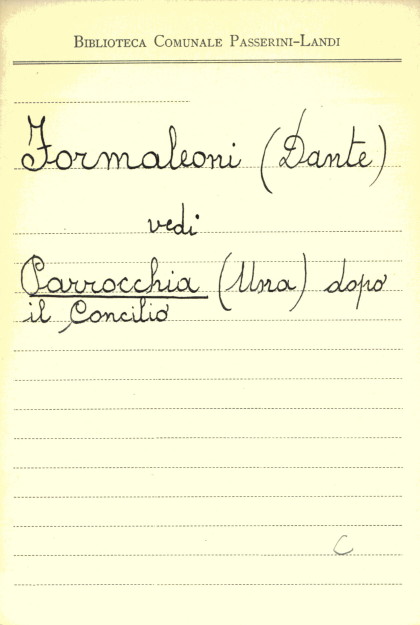 BIBLIOTECA COMUNALE PASSERINI-LANDI
Formaleoni (Dante)
vedi
Parrocchia (Una) dopo
il Concilio
C